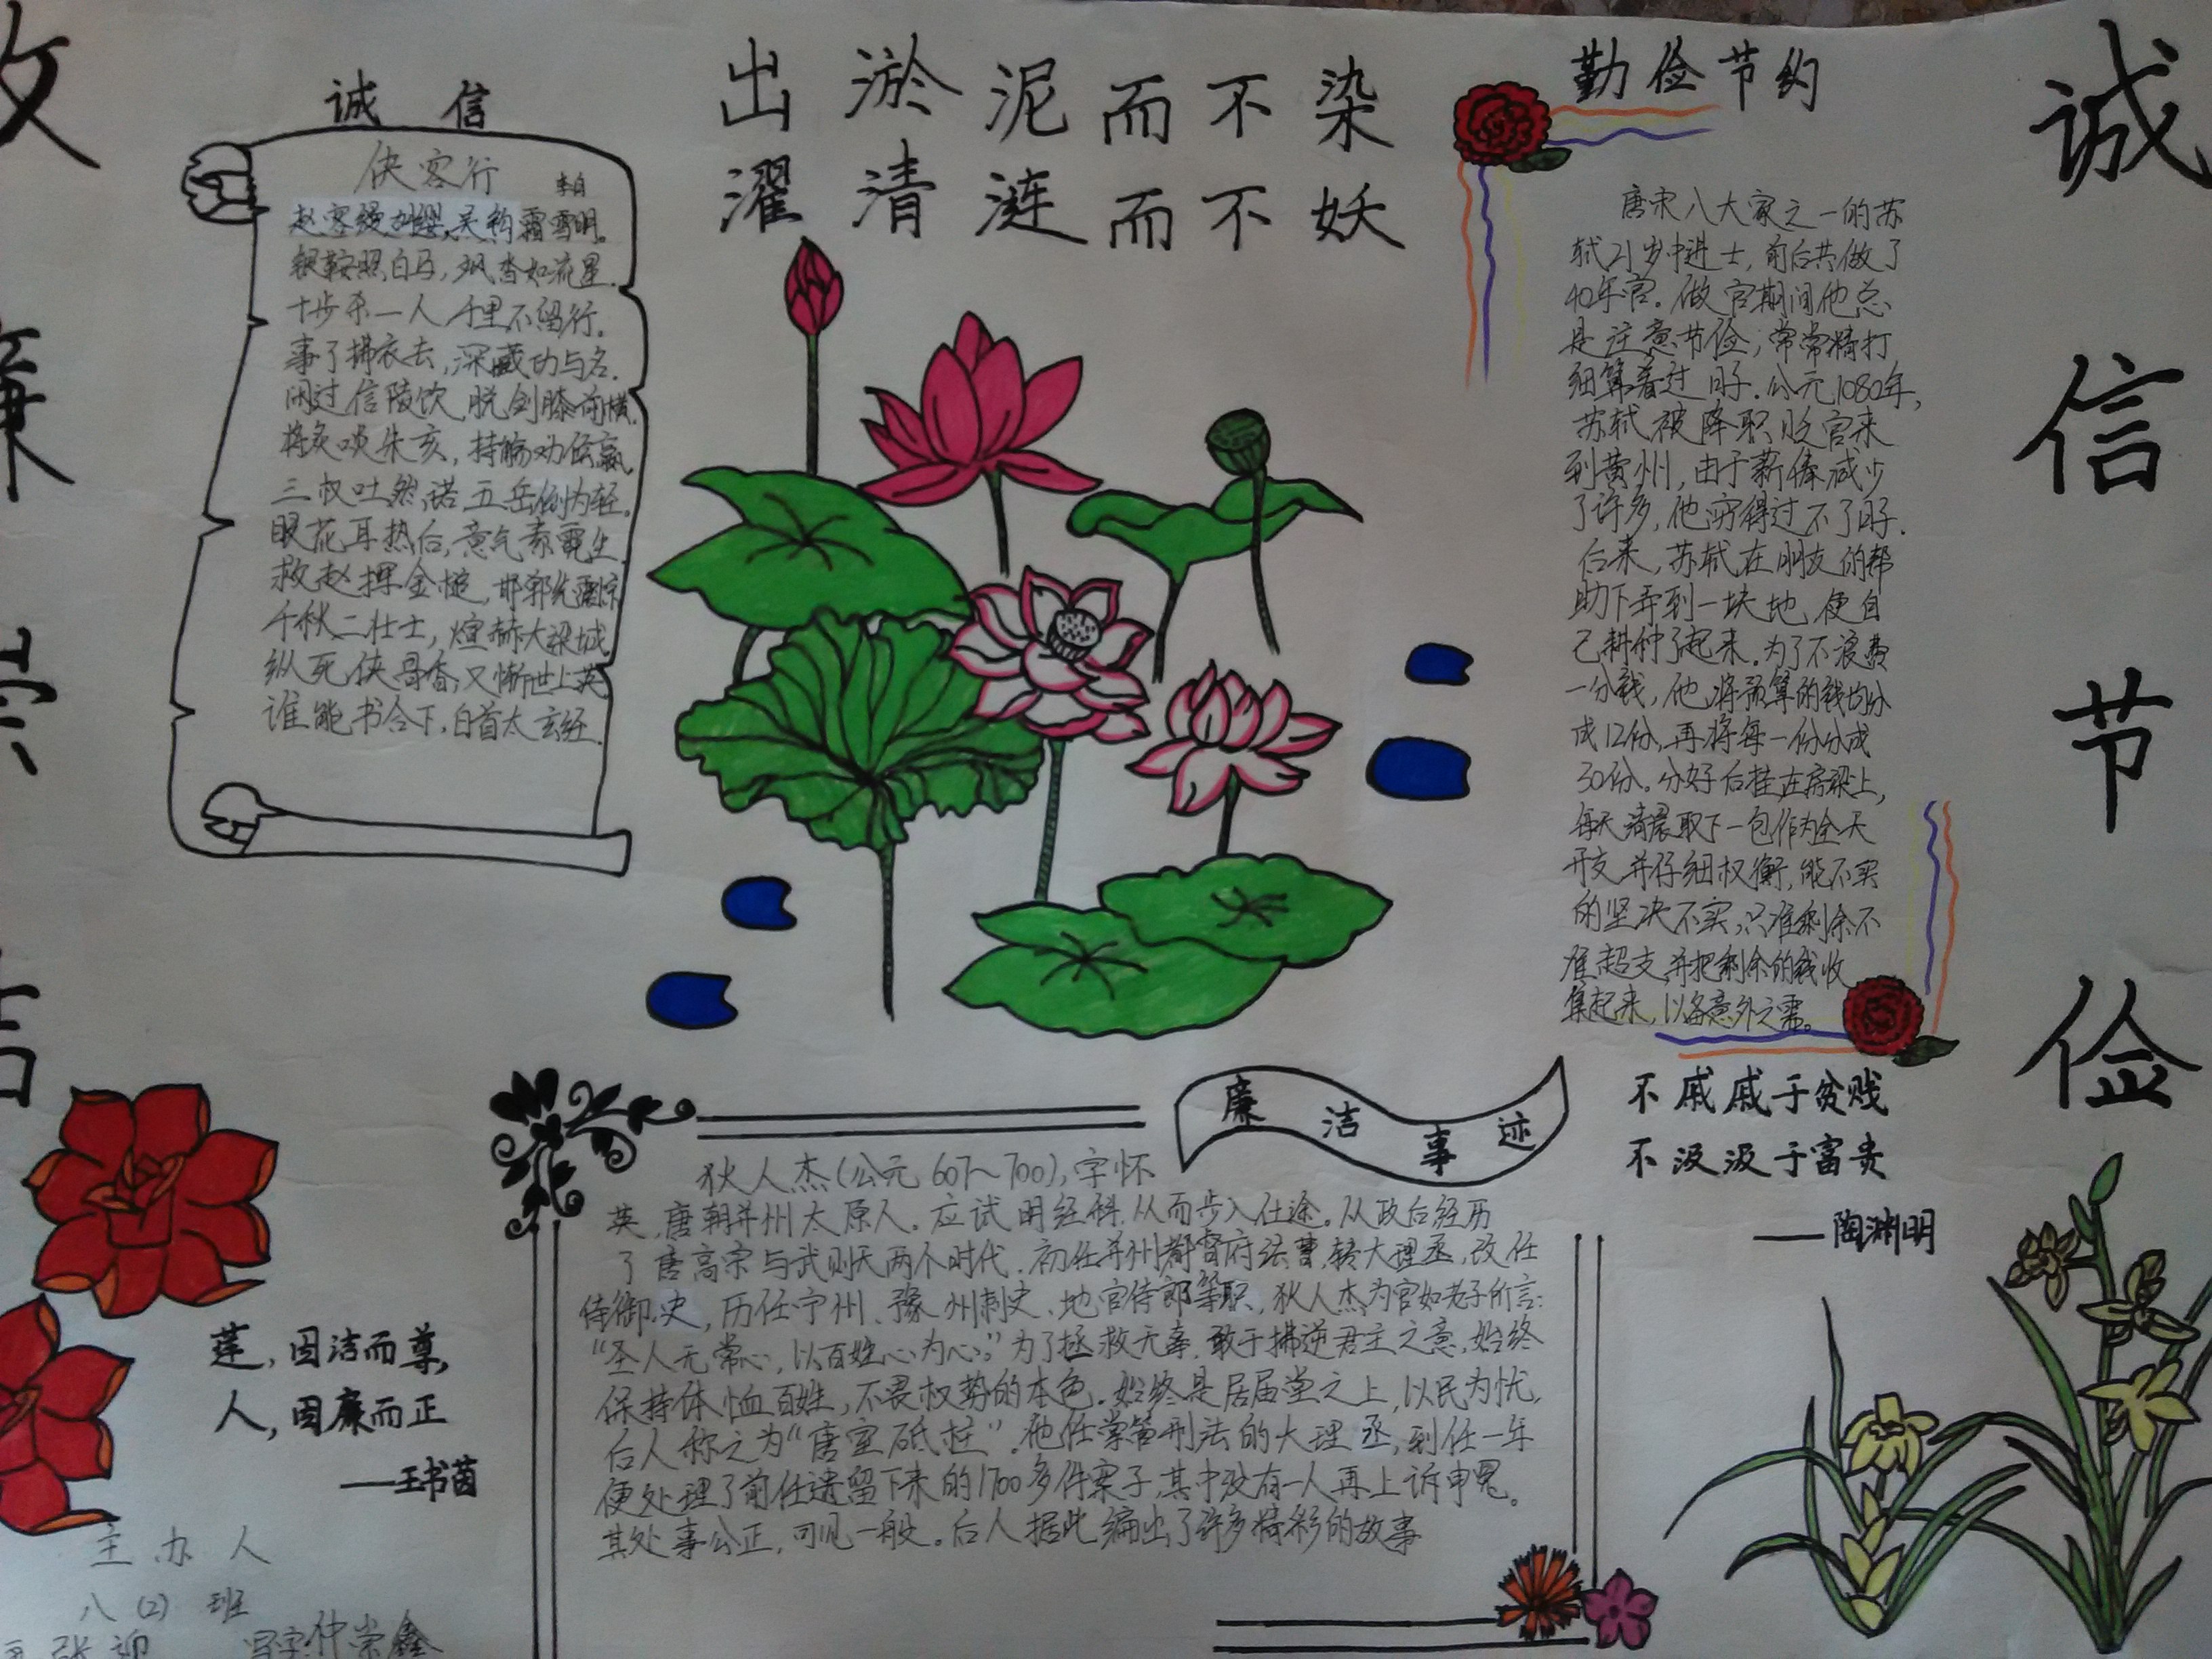 诚信
侠客行 李白
赵客缦胡缨,吴钩霜雪明。
银鞍照白马,飒沓如流星.
十步杀一人 千里不留行。
事了拂衣去,深藏功与名.
闲过信陵饮,脱剑膝前横.
将炙啖朱亥,持觞劝侯嬴.
三杈吐然诺 五岳倒为轻.
眼花耳热后,意气素霓生.
救赵挥金槌,邯郸先震惊
千秋二壮士,煊赫大梁城.
纵死侠骨香,又惭世上英
谁能书合下,白首太玄经.
出淤泥而不染
濯清涟而不妖
勤俭节约
唐宋八大家之一的苏
轼21岁中进士,前后共做了
40年官.做官期间他总
是注意节俭,常常精打
细算着过日子.公元1080年,
苏轼被降职贬官来
到黄州,由于薪俸减少
了许多,他穷得过不了日子.
后来,苏轼在朋友的帮
助下弄到一块地,便自
己耕种了起来.为了不浪费
一分钱,他将预算的钱均分
成12份,再将每一份分成
30份.分好后挂在房梁上,
每天清晨取下一包作为全天
开支,并仔细权衡,能不买
的坚决不买,只准剩余不
准超支,并把剩余的钱收
集起来,以备意外之需。
诚信节俭
不戚戚于贫贱
不汲汲于富贵
——陶渊明
廉洁事迹
狄人杰(公元607~700),字怀
英,唐朝并州太原人.应试明经科,从而步入仕途。从政后经历
了唐高宗与武则天两个时代.初任并州都督府法曹,转大理丞,改任
侍御史,历任宁州、豫州刺史、地官侍郎等职,狄人杰为官如老子所言:
“圣人无常心,以百姓心为心。”为了拯救无辜,敢于拂逆君主之意,始终
保持体恤百姓,不畏权势的本色.始终是居届堂之上,以民为忧,
后人称之为“唐室砥柱”.他任掌管刑法的大理丞,到任一年
便处理了前任遗留下来的1700多件案子,其中没有一人再上诉申冤。
其处事公正,可见一般。后人据此编出了许多精彩的故事
莲,因洁而尊,
人,因廉而正
——王书茵
主办人
八(2)班
张迎 写字:仲崇鑫